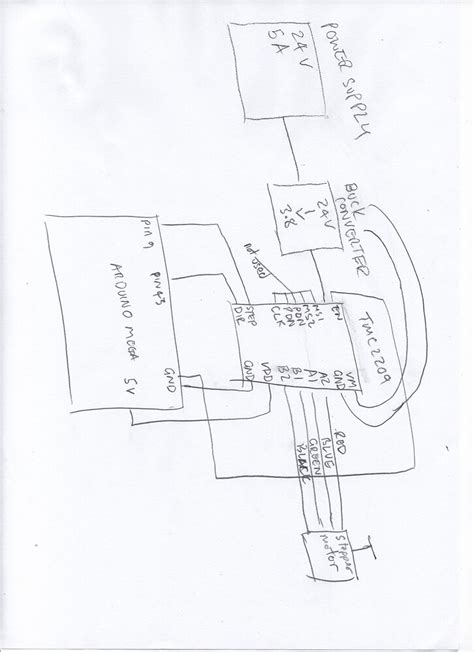 POWER SUPPLY
24V
5A
BUCK
CONVERTER
24V
3.8
TMC2209
EN
MS1
MS2
PDN
PDN
CLK
STEP
DIR
not used
VM
GND
A2
A1
B1
B2
VDD
GND
pin 9
pin 43
ARDUINO MEGA
5V
GND
RED
BLUE
GREEN
BLACK
Stepper
motor